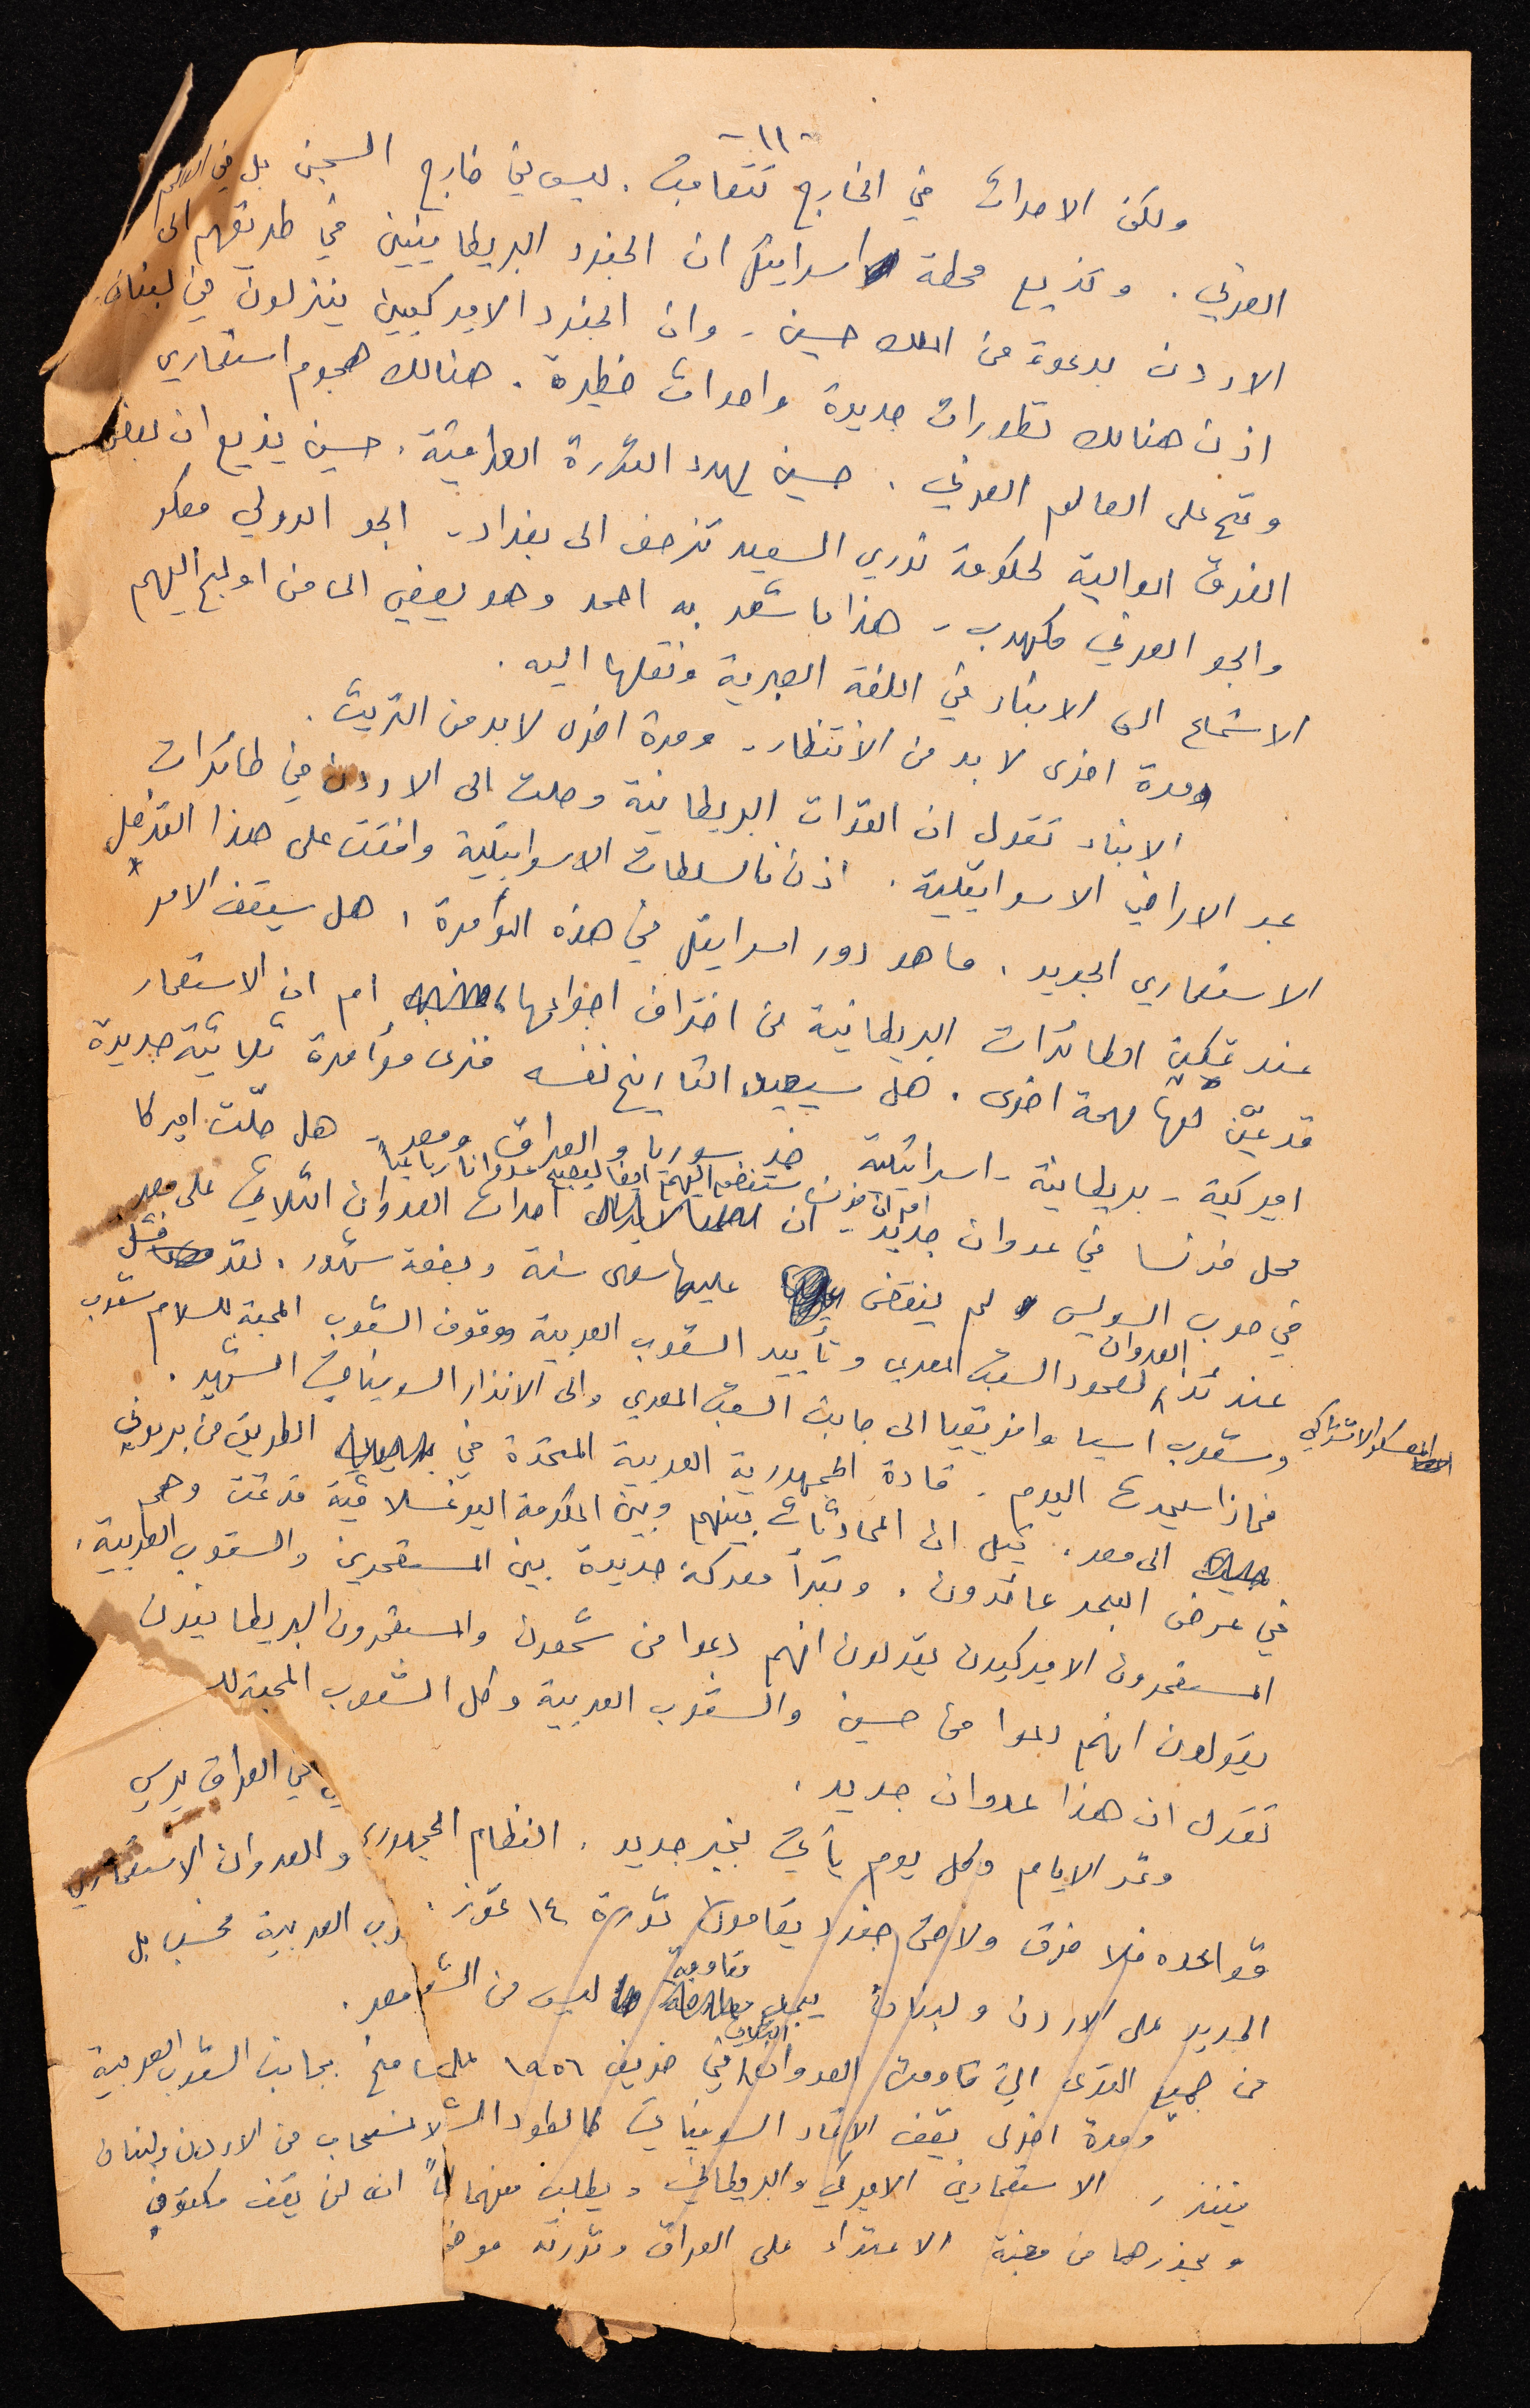 -١١-
ولكن الاحداث في الخارج تتعاقب. ليس في خارج السجن بل في العالم
العربي. وتذيع محطة اسرائيل ان الجنود البريطانيين في طريقهم الى
الاردن بدعوة من الملك حسين - وان الجنود الاميركيين ينزلون في لبنان.
اذن هنالك تطورات جديدة واحداث خطيرة. هنالك هجوم استعماري
وقح على العالم العربي. حسين يهدد الثورة العراقية. حسين يذيع ان بعض
الفرق الموالية لحكومة نوري السعيد تزحف الى بغداد - الجو الدولي معكر
والجو العربي مكهرب - هذا ما شعر به احمد وهو يصغي الى من اوليح اليهم
الاستماع الى الانباء في اللغة العبرية ونقلها اليه.
ومرة اخرى لا بد من الانتظار - ومرة اخرى لا بد من التريث.
الانباء تقول ان القوات البريطانية وصلت الى الاردن في طائرات
عبر الاراضي الاسرائيلية. اذن فالسلطات الاسرائيلية وافقت على هذا التدخل
الاستعماري الجديد. ما هو دور اسرائيل في هذه المؤامرة، هل سيقف الامر
عند تمكين الطائرات البريطانية من اختراق اجوائها، ام ان الاستعمار
قد عيّن لها مهمة اخرى. هل سيعيد التاريخ نفسه فنرى مؤامرة ثلاثية جديدة
اميركية - بريطانية - اسرائيلية ضد سوريا والعراق ومصر - هل حلّت اميركا
ام ان فرنسا ستنضم اليهم ايضا ليصبح عدوانا رباعياً
محل فرنسا في عدوان جديد - ان احداث العدوان الثلاثي على مصر
في حرب السويس لم ينقض عليها سوى سنة وبضعة شهور. لقد فشل
العدوان
عندئذ لصمود الشعب المصري وتأييد الشعوب العربية ووقوف الشعوب المحبة للسلام شعوب
المعسكر الاشتراكي
وشعوب اسيا وافريقيا الى جانب الشعب المصري والى الانذار السوفياتي الشهير.
فماذا سيحدث اليوم. قادة الجمهورية العربية المتحدة في الطريق من بريوني
الى مصر. قيل ان المحادثات بينهم وبين الحكومة اليوغسلافية قد تمت وهم
في عرض البحر عائدون. وتبدأ معركة جديدة بين المستعمرين والشعوب العربية،
المستعمرون الاميركيون يقولون انهم دعوا من شمعون والمستعمرون البريطانيون
يقولون انهم دعوا من حسين والشعوب العربية وكل الشعوب المحبة لل
تقول ان هذا عدوان جديد.
وتمر الايام وكل يوم يأتي بخبر جديد. النظام الجمهوري في العراق يرسي
قواعده فلا فرق ولا حتى جنود يقاومون ثورة ١٤ تموز. والعدوان الاستعماري
الجديد على الاردن ولبنان يجابه مقاومة ليس من الشعوب العربية فحسب بل
من جميع القوى التي قاومت العدوان الثلاثي في خريف ١٩٥٦ على مصر.
ومرة اخرى يقف الاتحاد السوفياتي كالطود الشامخ بجانب الشعوب العربية
فينذر الاستعمارين الاميركي والبريطاني ويطلب منهما الانسحاب من الاردن ولبنان
ويحذرهما من مغبة الاعتداء على العراق وثورته موضحاً انه لن يقف مكتوف